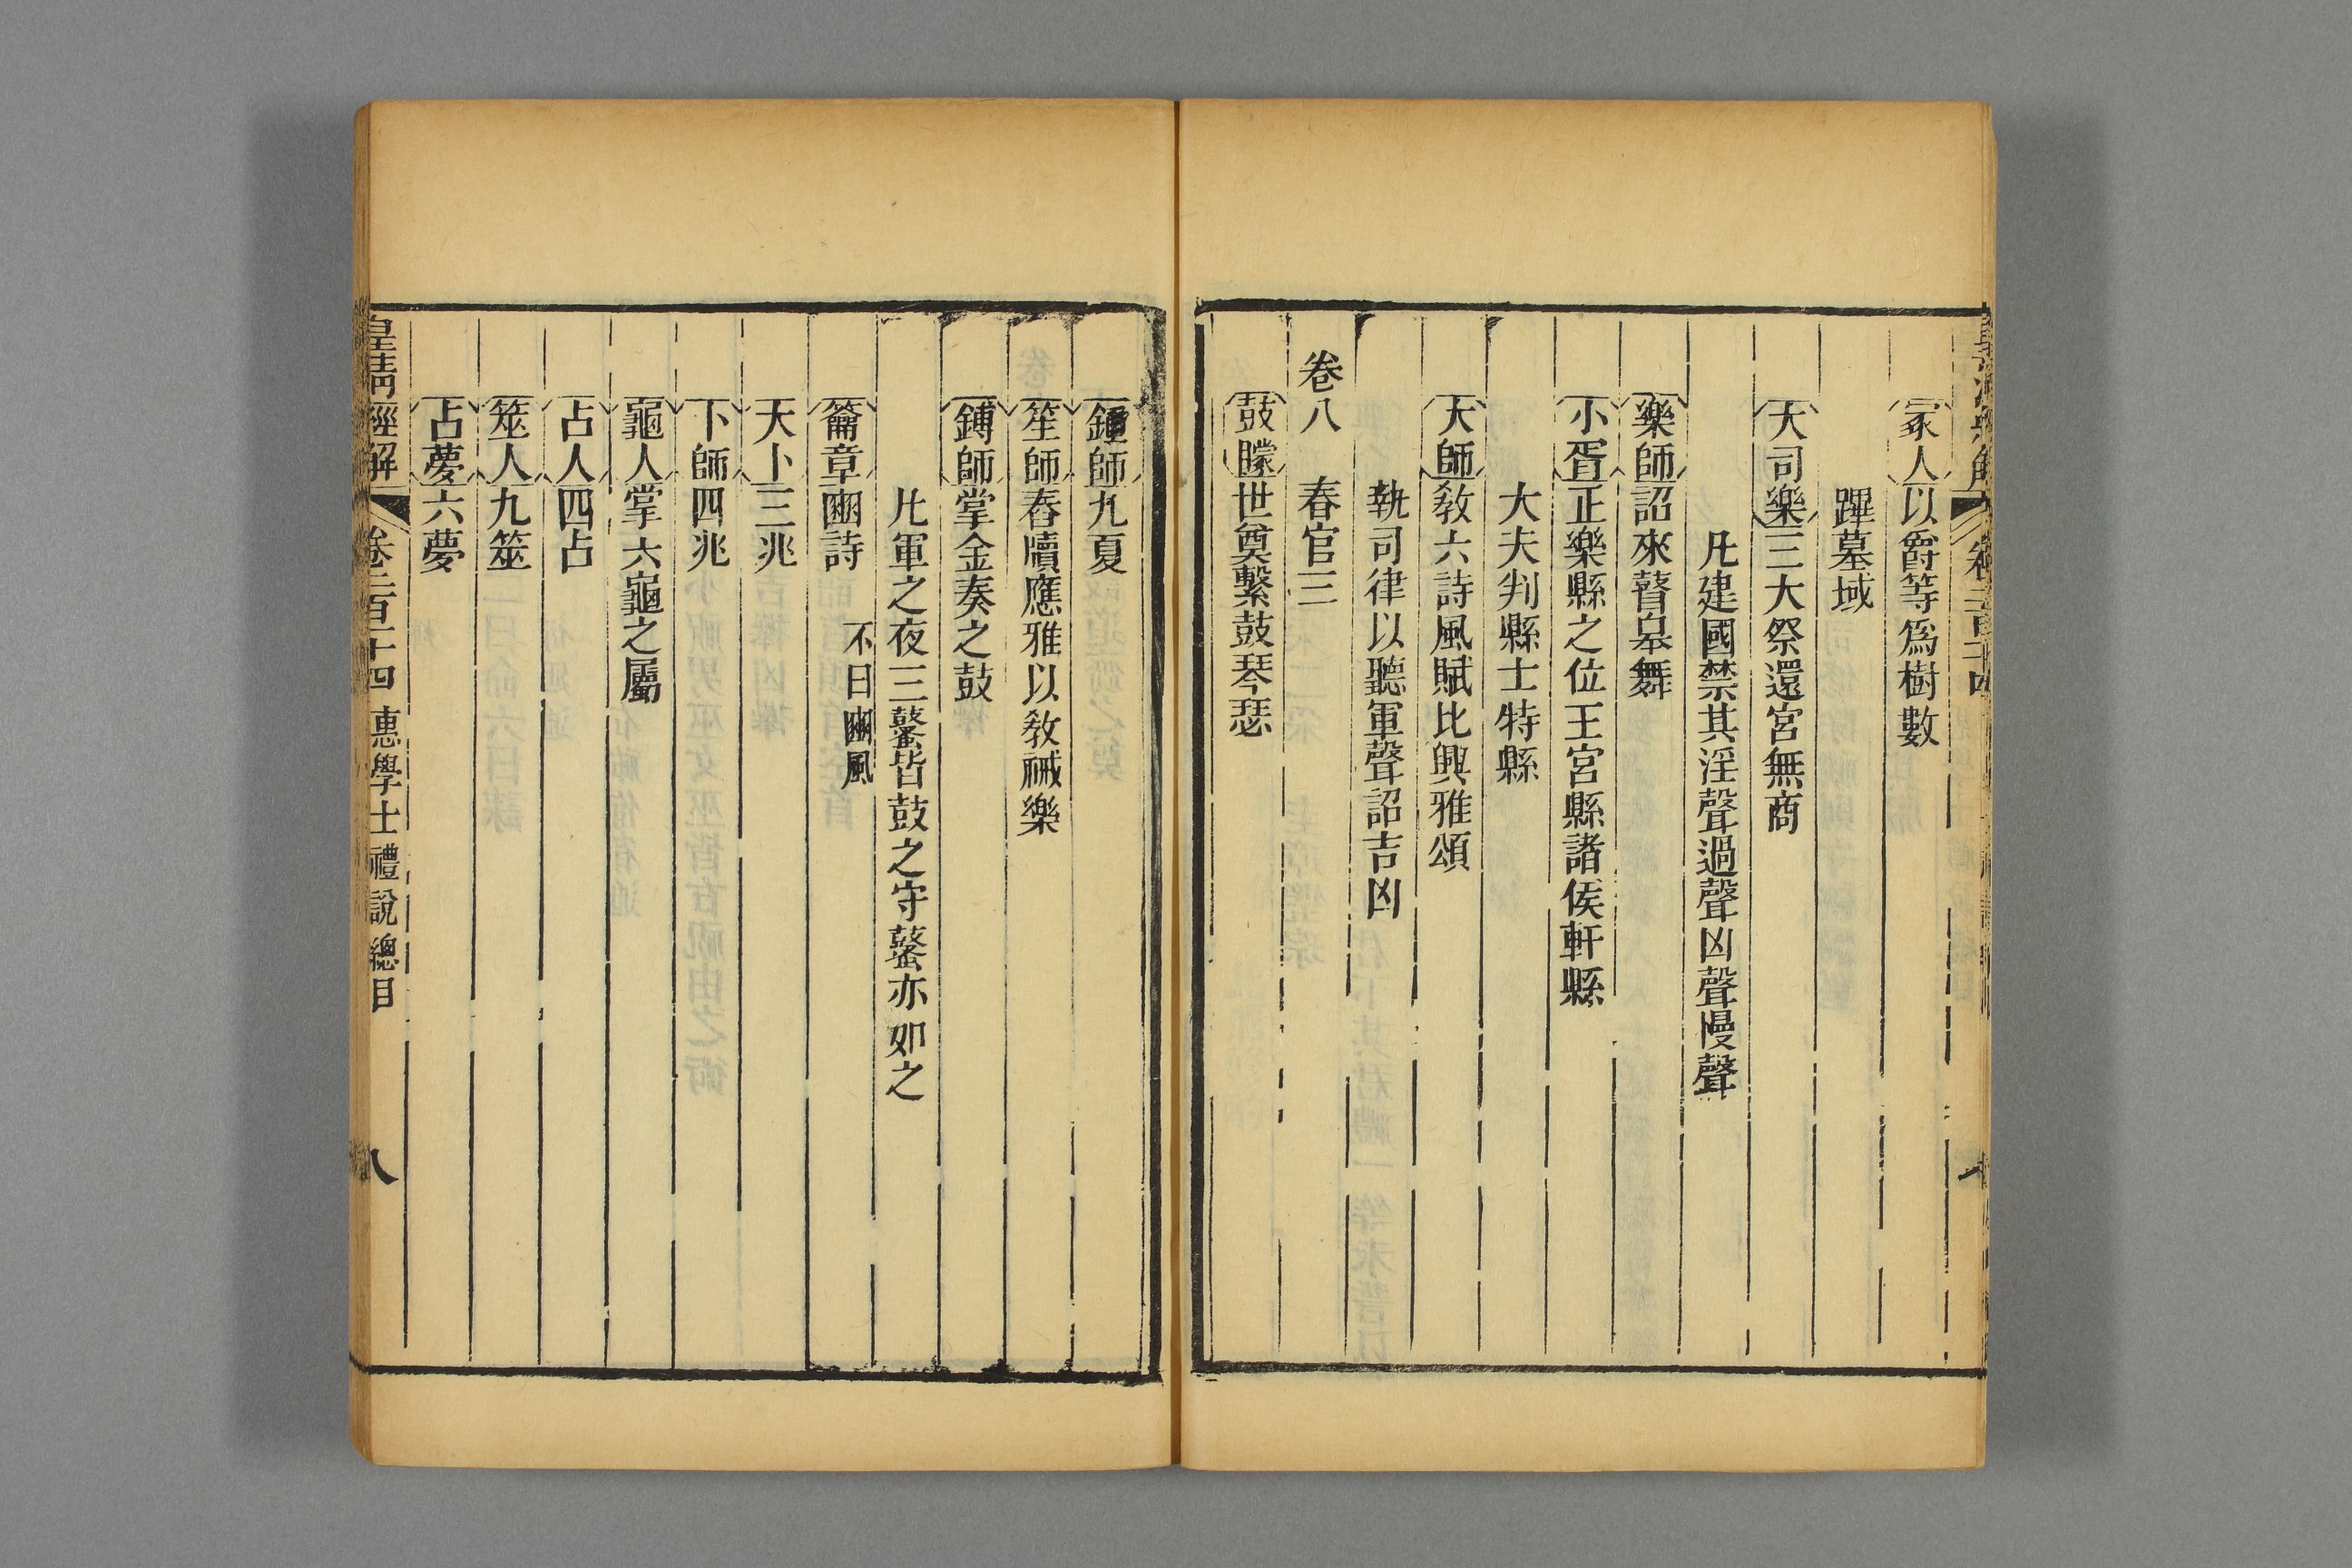 冢人以爵等爲樹數
蹕墓域
大司樂三大祭還宮無商
凡建國禁其淫聲過聲凶聲慢聲
樂師詔來瞽皋舞
小胥正樂縣之位王宮縣諸侯軒縣
大夫判縣士特縣
大師教六詩風賦比興雅頌
執司律以聽軍聲詔吉凶
卷八　春官三
鼓矇世奠繫鼓琴瑟
鍾師九夏
笙師舂牘應雅以敎祴樂
鎛師掌金奏之鼓
凡軍之夜三鼜皆鼓之守鼜亦如之
籥章豳詩　不曰豳風
大卜三兆
卜師四兆
龜人掌六龜之屬
占人四占
簭人九簭
占夢六夢
皇清經解　卷二百十四　惠學士禮說總目　八